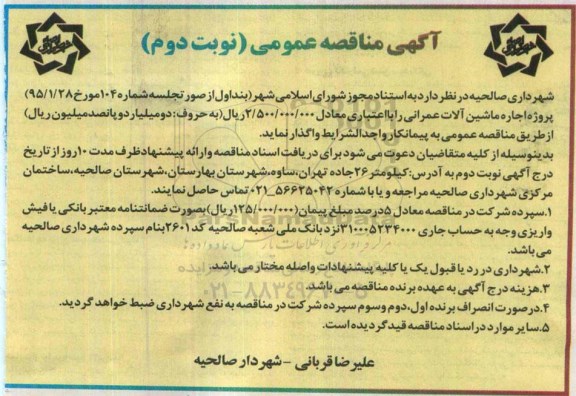 آگهی مناقصه عمومی (نوبت دوم)
شهرداری صالحیه در نظر دارد به استناد مجوز شورای اسلامی شهر (بند اول از صور تجلسه شماره ۱۰۴ مورخ ۹۵/۱/۲۸)
پروژه اجاره ماشین آلات عمرانی را با اعتباری معادل ۲/۵۰۰/۰۰۰/۰۰۰ ریال (به حروف: دو میلیارد و پانصد میلیون ریال)
از طریق مناقصه عمومی به پیمانکار واجد الشرایط واگذار نماید.
بدینوسیله از کلیه متقاضیان دعوت می شود برای دریافت اسناد مناقصه و ارائه پیشنهاد ظرف مدت ۱۰ روز از تاریخ
درج آگهی نوبت دوم به آدرس: کیلومتر ۲۶ جاده تهران، ساوه، شهرستان بهارستان، شهرستان صالحیه، ساختمان
مرکزی شهرداری صالحیه مراجعه و یا با شماره ۵۶۶۲۵۰۴۲_۰۲۱ تماس حاصل نمایند.
۱. سپرده شرکت در مناقصه معادل ۵ درصد مبلغ پیمان (۱۲۵/۰۰۰/۰۰۰ ریال) بصورت ضمانتنامه معتبر بانکی یا فیش
واریزی وجه به حساب جاری ۳۱۰۰۰۵۲۳۴۰۰۰ نزد بانک ملی شعبه صالحیه کد ۲۶۰۱ بنام سپرده شهرداری صالحیه
می باشد.
۲. شهرداری در رد یا قبول یک یا کلیه پیشنهادات واصله مختار می باشد.
۳. هزینه درج آگهی به عهده برنده مناقصه می باشد.
۴. در صورت انصراف برنده اول، دوم و سوم سپرده شرکت در مناقصه به نفع شهرداری ضبط خواهد گردید.
۵. سایر موارد در اسناد مناقصه قید گردیده است.
علیرضا قربانی - شهردار صالحیه